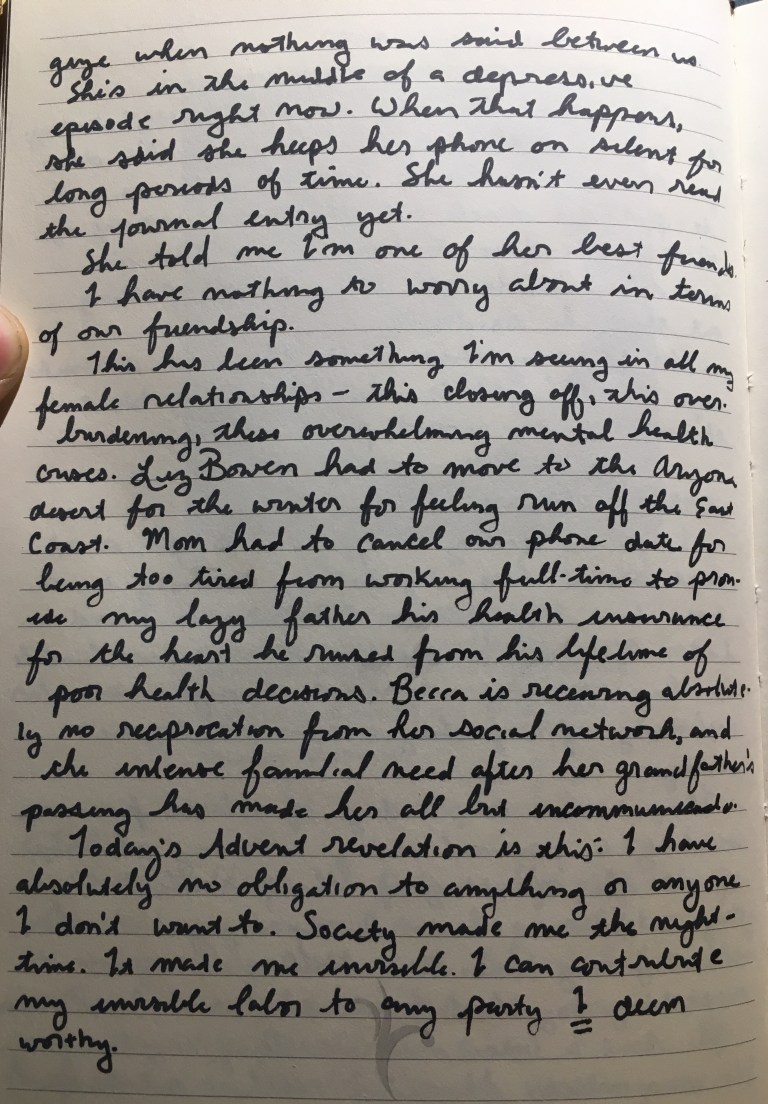 guze when nothing was said between us.
She's in the middle of a depressive
episode right now. When that happens,
she said she keeps her phone on silent for
long periods of time. She hasn't even read
the journal entry yet.
She told me I'm one of her best friends.
I have nothing to worry about in terms
of our friendship.
This has been something I'm seeing in all my
female relationships – this closing off, this over-
burdening, these overwhelming mental health
crises. Liz Bowen had to move to the Arizona
desert for the winter for feeling run off the East
Coast. Mom had to cancel our phone date for
being too tired from working full-time to prov-
ide my lazy father his health insurance
for the heart he ruined from his lifetime of
poor health decisions. Becca is receiving absolute-
ly no reciprocation from her social network, and
the intense familial need after her grandfather's
passing has made her all but incommunicado.
Today's Advent revelation is this: I have
absolutely no obligation to anything or anyone
I don't want to. Society made me the night-
time. It made me invisible. I can contribute
my invisible labor to any party I deem
worthy.